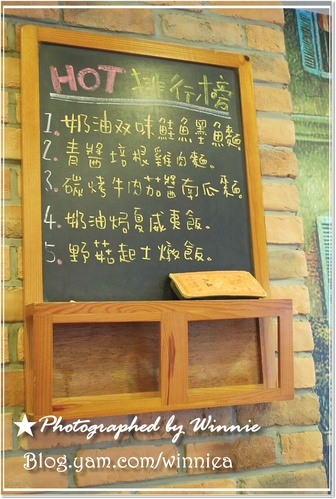 HOT 排行榜
1. 奶油双味鮭魚墨魚麵
2. 青醬培根雞肉麵。
3. 碳烤牛肉茄醬南瓜麵。
4. 奶油焗夏威夷飯。
5. 野菇起士燉飯。
★ Photographed by Winnie
Blog.yam.com/winniea